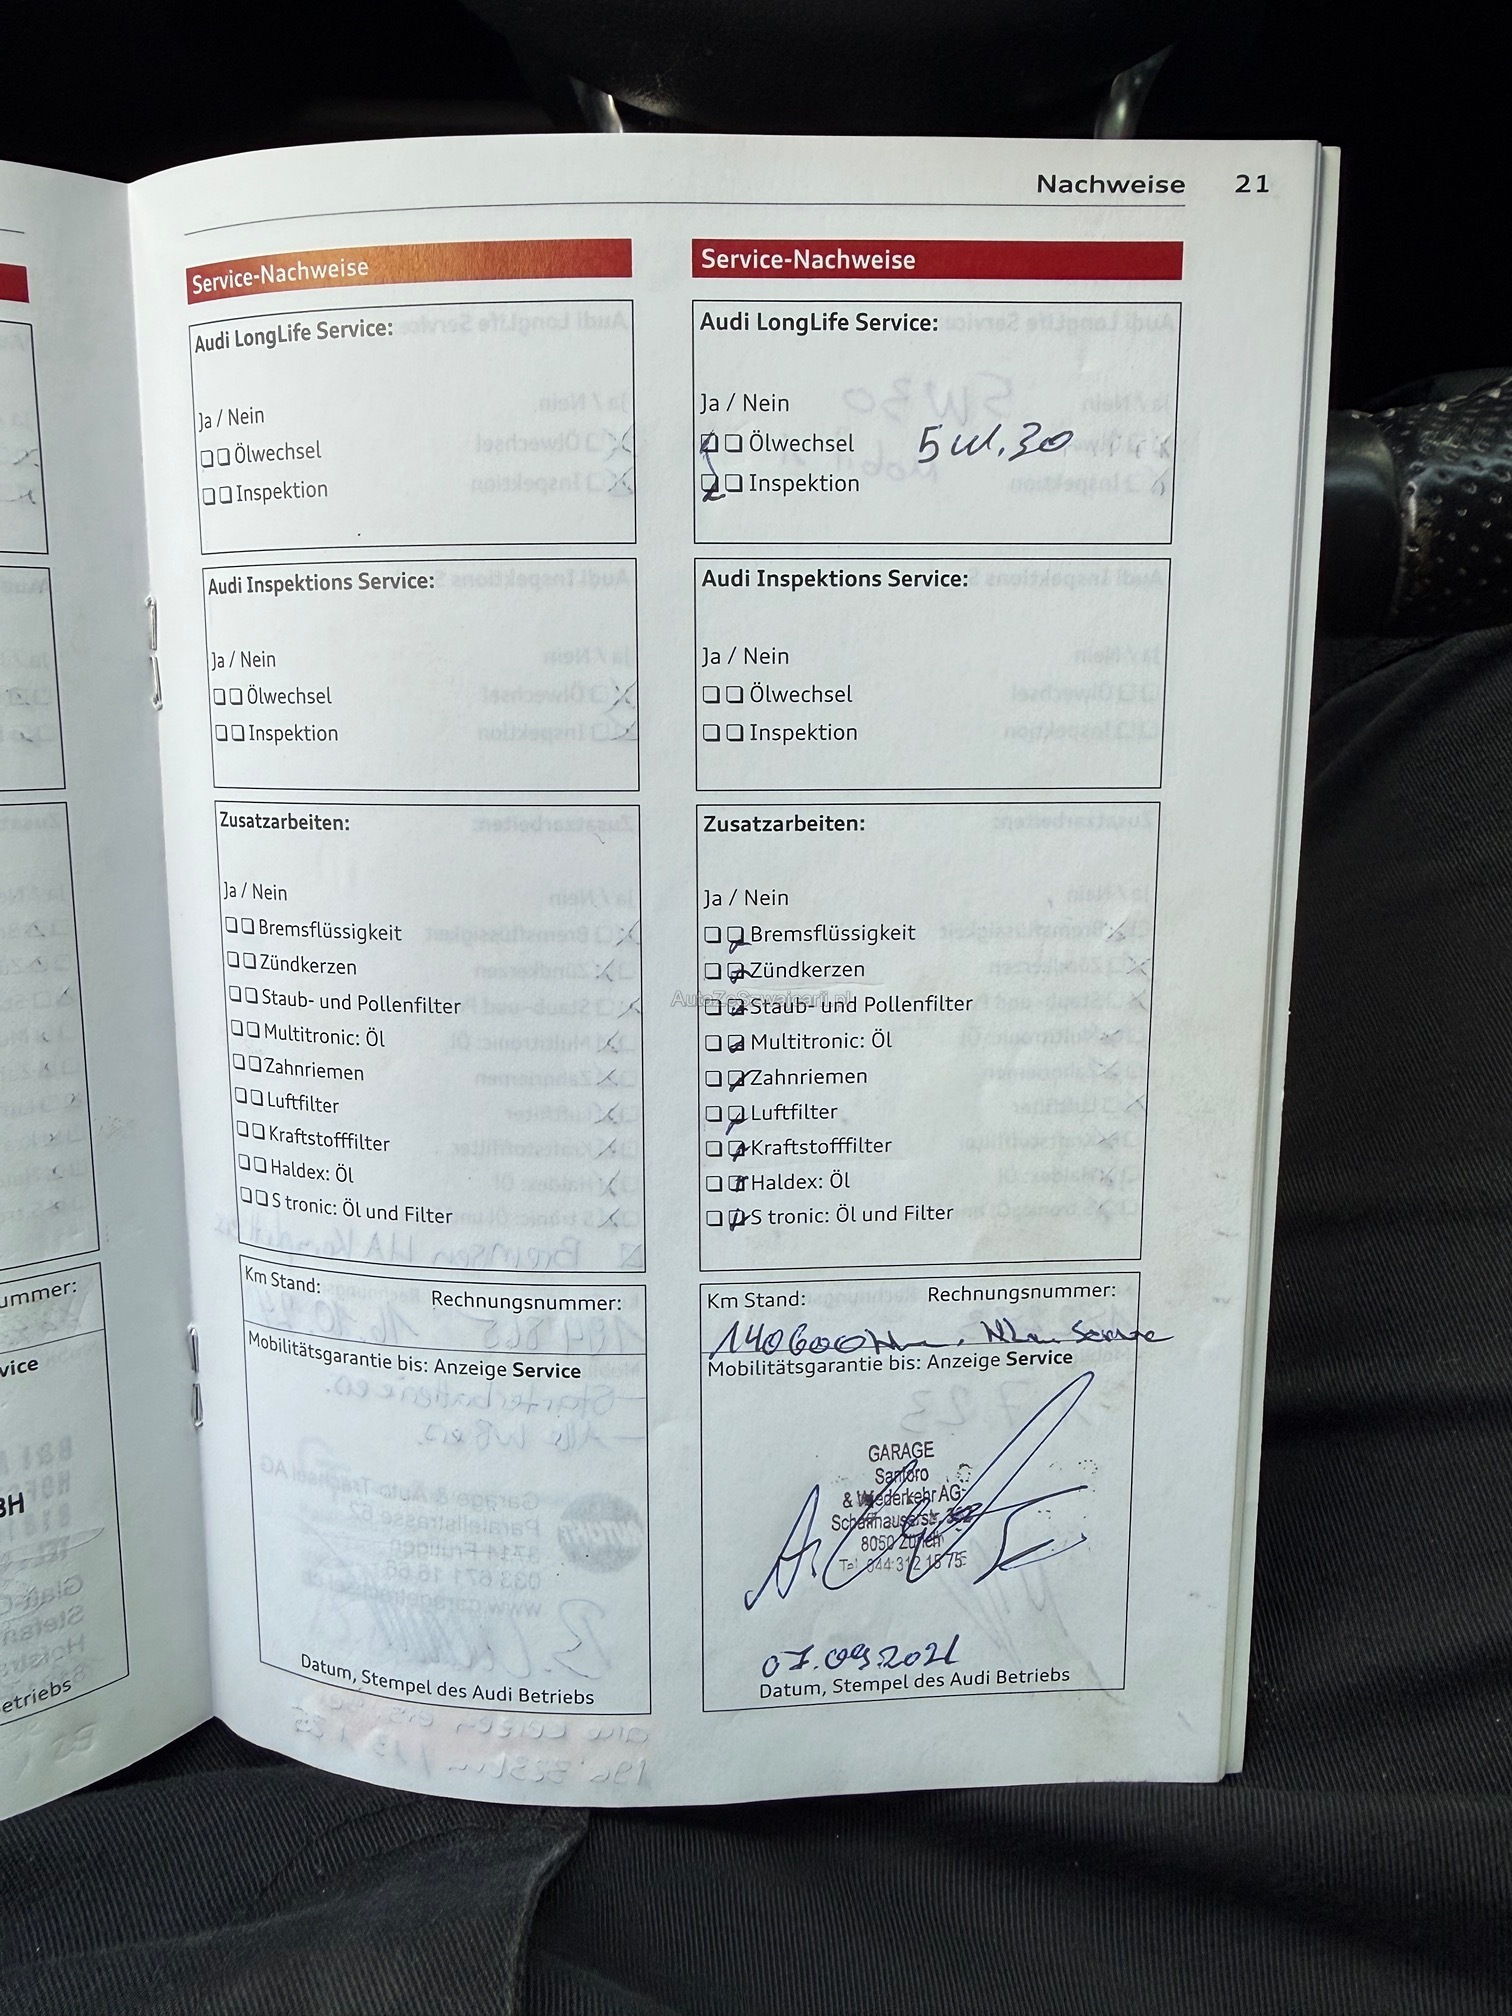 Nachweise 21
Service-Nachweise
Audi LongLife Service:
Ja / Nein
Ölwechsel
Inspektion
Audi Inspektions Service:
Ja / Nein
Ölwechsel
Inspektion
Zusatzarbeiten:
Ja / Nein
Bremsflüssigkeit
Zündkerzen
Staub- und Pollenfilter
Multitronic: Öl
Zahnriemen
Luftfilter
Kraftstofffilter
Haldex: Öl
S tronic: Öl und Filter
Km Stand: Rechnungsnummer:
Mobilitätsgarantie bis: Anzeige Service
Datum, Stempel des Audi Betriebs
Service-Nachweise
Audi LongLife Service:
Ja / Nein
Ölwechsel 5W.30
Inspektion
Audi Inspektions Service:
Ja / Nein
Ölwechsel
Inspektion
Zusatzarbeiten:
Ja / Nein
Bremsflüssigkeit
Zündkerzen
Staub- und Pollenfilter
Multitronic: Öl
Zahnriemen
Luftfilter
Kraftstofffilter
Haldex: Öl
S tronic: Öl und Filter
Km Stand: Rechnungsnummer:
140600 Service
Mobilitätsgarantie bis: Anzeige Service
GARAGE
Santoro
& Wiederkehr AG
Schaffhauserstr. 352
8050 Zürich
Tel. 044 312 15 75
07.09.2021
Datum, Stempel des Audi Betriebs
AutoZeSzwajcarii.pl
ummer:
vice
BH
etriebs